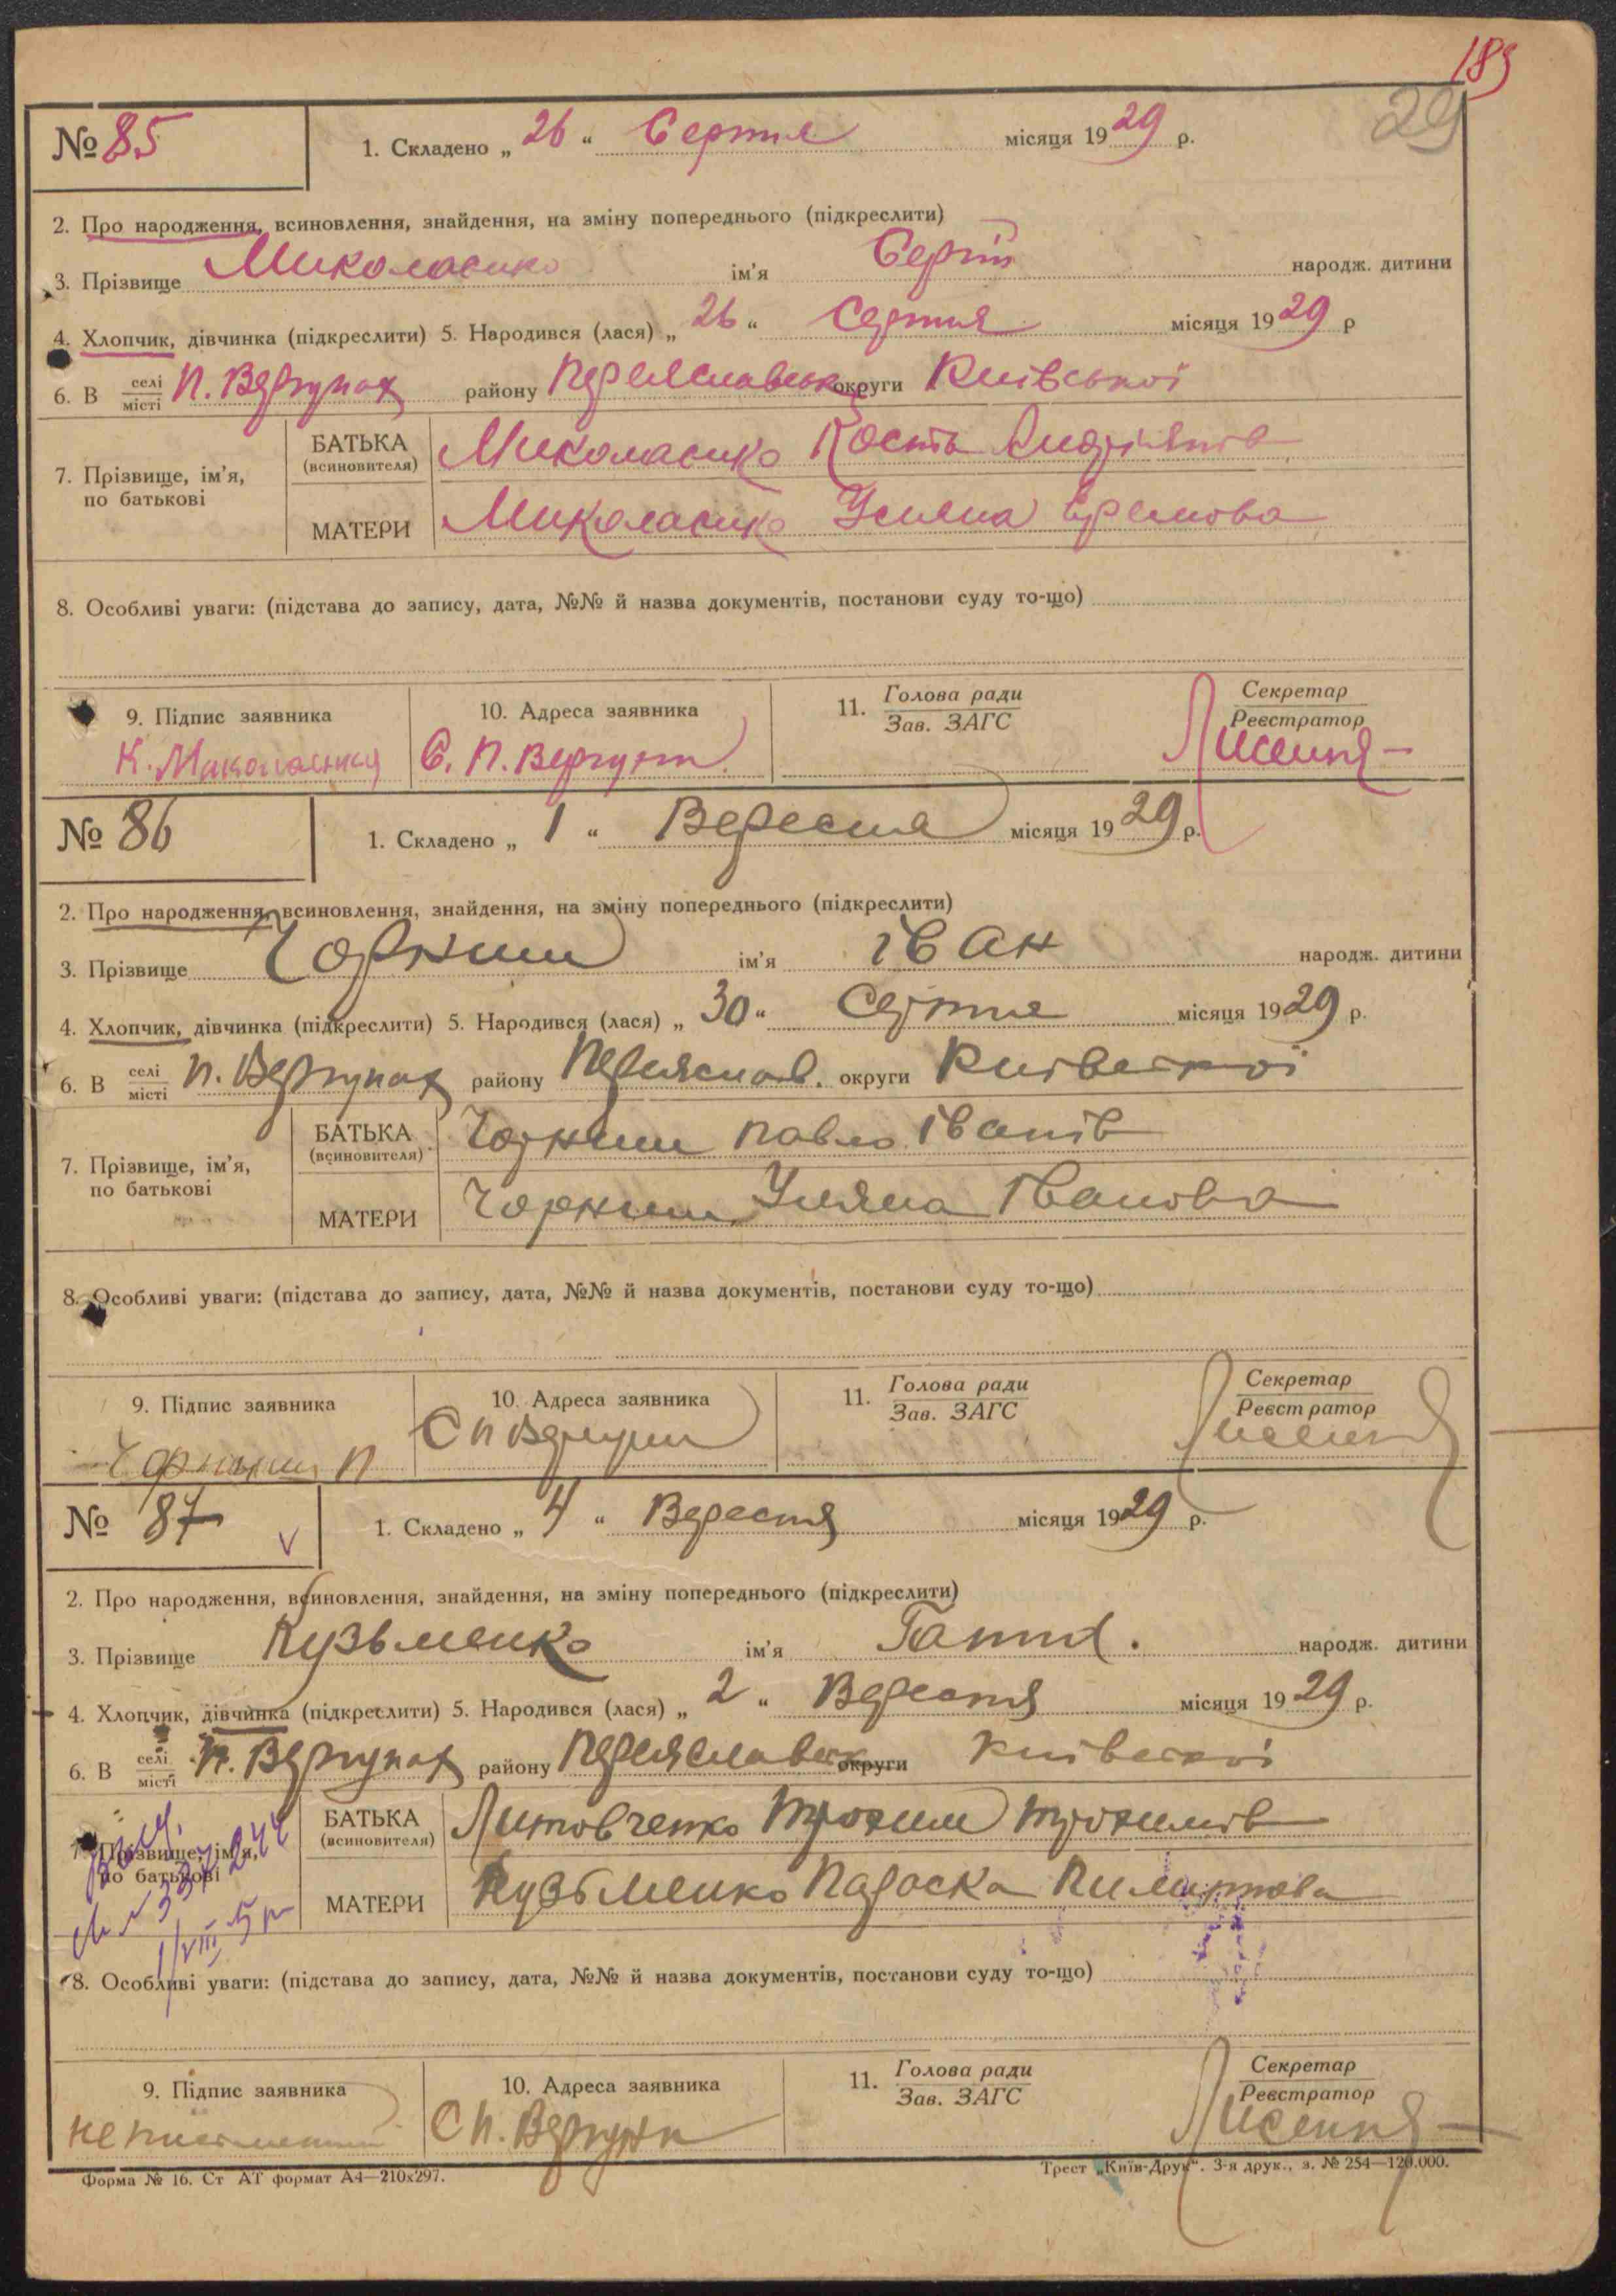 189
29
№ 85
1. Складено „ 26 “ Серпня місяця 1929 р.
2. Про народження, всиновлення, знайдення, на зміну попереднього (підкреслити)
3. Прізвище Миколаєнко ім'я Сергій народж. дитини
4. Хлопчик, дівчинка (підкреслити) 5. Народився (лася) „ 26 “ Серпня місяця 1929 р
6. В селі місті П. Вергунах району Переяславськ округи Київської
7. Прізвище, ім'я, по батькові
БАТЬКА (всиновителя) Миколаєнко Кость
МАТЕРИ Миколаєнко Уляна
8. Особливі уваги: (підстава до запису, дата, №№ й назва документів, постанови суду то-що)
9. Підпис заявника 10. Адреса заявника 11. Голова ради Зав. ЗАГС Секретар Реєстратор
К. Миколаєнко С. П. Вергуни
№ 86
1. Складено „ 1 “ Вересня місяця 1929 р.
2. Про народження, всиновлення, знайдення, на зміну попереднього (підкреслити)
3. Прізвище Чорниш ім'я Іван народж. дитини
4. Хлопчик, дівчинка (підкреслити) 5. Народився (лася) „ 30 “ Серпня місяця 1929 р.
6. В селі місті П. Вергунах району Переяслав. округи Київської
7. Прізвище, ім'я, по батькові
БАТЬКА (всиновителя) Чорниш Павло Іванів
МАТЕРИ Чорниш Уляна Іванова
8. Особливі уваги: (підстава до запису, дата, №№ й назва документів, постанови суду то-що)
9. Підпис заявника 10. Адреса заявника 11. Голова ради Зав. ЗАГС Секретар Реєстратор
Чорниш П С П Вергуни
№ 87
1. Складено „ 4 “ Вересня місяця 1929 р.
2. Про народження, всиновлення, знайдення, на зміну попереднього (підкреслити)
3. Прізвище Кузьменко ім'я народж. дитини
4. Хлопчик, дівчинка (підкреслити) 5. Народився (лася) „ 2 “ Вересня місяця 1929 р.
6. В селі місті П. Вергунах району Переяславськ округи Київської
7. Прізвище, ім'я, по батькові
БАТЬКА (всиновителя) Литовченко Трохим Трохимів
МАТЕРИ Кузьменко Параска
8. Особливі уваги: (підстава до запису, дата, №№ й назва документів, постанови суду то-що)
9. Підпис заявника 10. Адреса заявника 11. Голова ради Зав. ЗАГС Секретар Реєстратор
С П. Вергуни
Форма № 16. Ст АТ формат А4—210х297.
Трест „Київ-Друк“. 3-я друк., з. № 254—120.000.